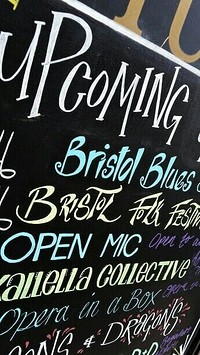 UPCOMING
Bristol Blues
BRISTOL FOLK FESTIV
OPEN MIC Open to
KALLELLA COLLECTIVE
Opera in a Box
& DRAGONS